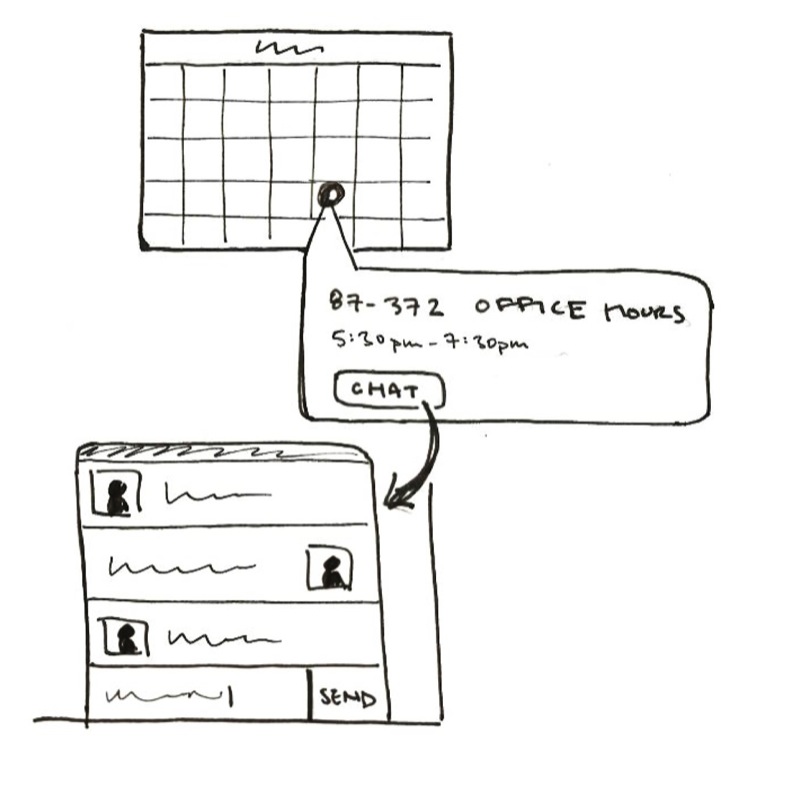 87-372 OFFICE HOURS
5:30pm - 7:30pm
CHAT
SEND